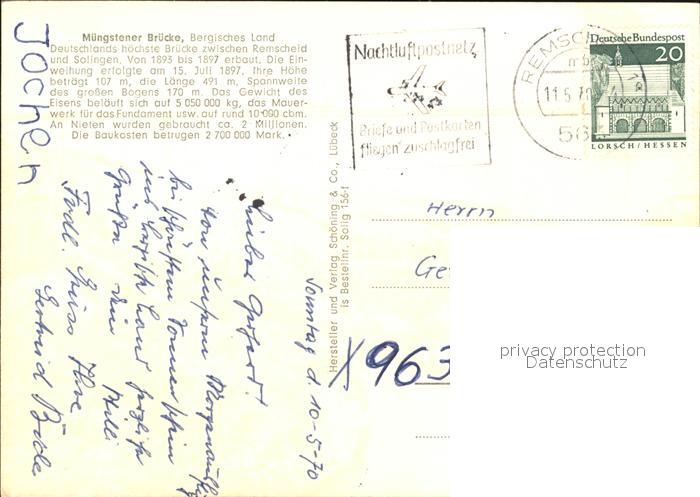 Jochen
Müngstener Brücke, Bergisches Land
Deutschlands höchste Brücke zwischen Remscheid
und Solingen. Von 1893 bis 1897 erbaut. Die Ein-
weihung erfolgte am 15. Juli 1897. Ihre Höhe
beträgt 107 m, die Länge 491 m, Spannweite
des großen Bogens 170 m. Das Gewicht des
Eisens beläuft sich auf 5 050 000 kg, das Mauer-
werk für das Fundament usw. auf rund 10 090 cbm.
An Nieten wurden gebraucht ca. 2 Millionen.
Die Baukosten betrugen 2 700 000 Mark.
Nachtluftpostnetz
Briefe und Postkarten
fliegen zuschlagfrei
REMSC
11.5.70
56
Deutsche Bundespost
20
LORSCH/HESSEN
Sonntag d. 10-5-70
Lieber Gerhard!
von unserm
bei schönstem Sonnenschein
ins bergische Land herzliche
Grüße dein Willi
Frdl. Gruss Ihre
Gertrud
Hersteller und Verlag Schöning & Co., Lübeck
is Bestellnr. Solig 156 f
Herrn
Ge
X963
privacy protection
Datenschutz